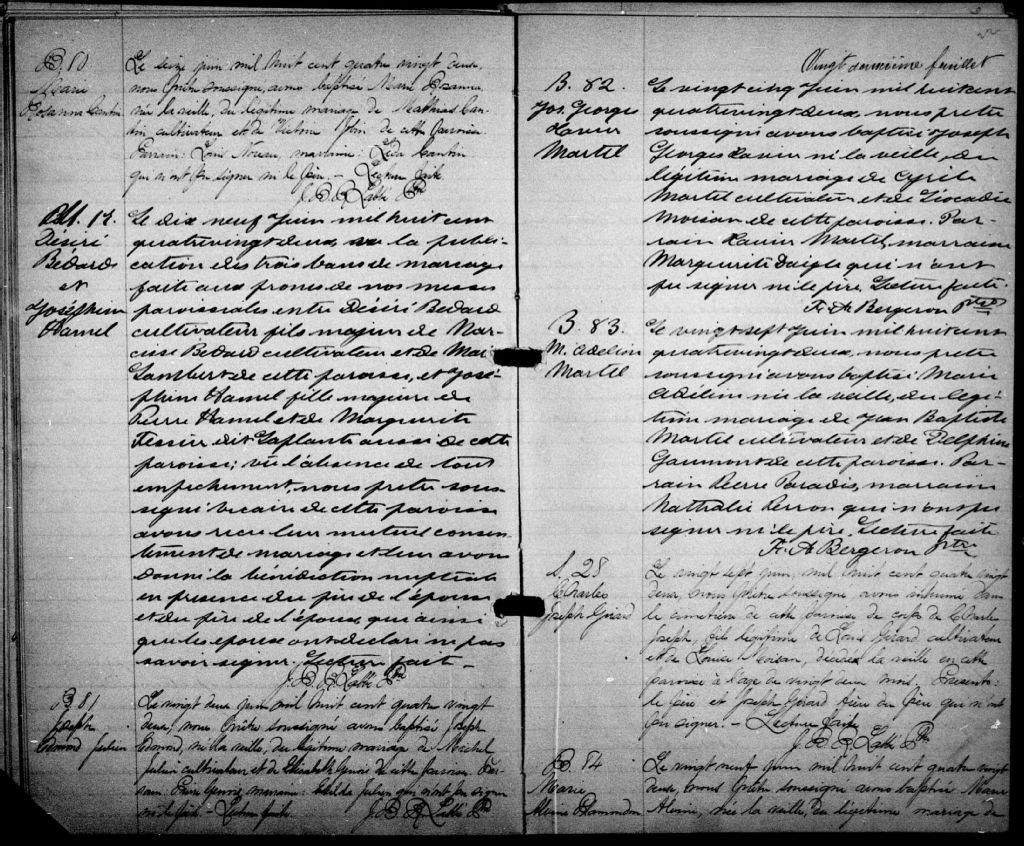 B. 80
Marie
Rosanna Cantin
Le seize juin mil huit cent quatre vingt deux,
nous Prêtre soussigné, avons baptisé Marie Rosanna,
née la veille, du légitime mariage de Mathias Can-
tin cultivateur et de de cette paroisse
Parrain: Louis marraine: Léda Cantin
qui n'ont su signer ni le père. - Lecture faite
J. B. R. Ptre
M. 12.
Désiré
Bedard
et
Joséphine
Hamel
Le dix neuf Juin mil huit cent
quatrevingt deux, vu la publi-
cation des trois bans de mariage
faite aux prones de nos messes
paroissiales entre Désiré Bedard
cultivateur fils majeur de Nar-
cisse Bedard cultivateur et de Marie
Lambert de cette paroisse, et José-
phine Hamel fille majeure de
Pierre Hamel et de Marguerite
Tessier dit Laplante aussi de cette
paroisse; vu l'absence de tout
empechement, nous pretre sous-
signé vicaire de cette paroisse
avons recu leur mutuel consen-
tement de mariage et leur avons
donné la bénédiction nuptiale
en présence du père de l'époux
et du père de l'épouse, qui ainsi
que les epoux ont déclaré ne pas
savoir signer. Lecture faite -
J. B. R. Ptre
B. 81
Joseph
Edmond Julien
Le vingt deux juin mil huit cent quatre vingt
deux, nous Prêtre soussigné avons baptisé Joseph
Edmond, né la veille, du légitime mariage de Michel
Julien cultivateur et de Elisabeth Genois de cette paroisse. Par-
rain: Pierre Genois, marraine: Julien qui n'ont su signer
ni le père - Lecture faite J. B. R. Ptre
Vingt deuxième feuillet
B. 82.
Jos. Georges
Xavier
Martel
Le vingt cinq Juin mil huit cent
quatrevingt deux, nous pretre
soussigné avons baptisé Joseph
Georges Xavier né la veille, du
légitime mariage de Cyrile
Martel cultivateur et de Léocadie
Moisan de cette paroisse. Par-
rain Xavier Martel, marraine
Marguerite Daigle qui n'ont
pu signer ni le père. Lecture faite.
F. A Bergeron ptre
B. 83.
M. Adeline
Martel
Le vingt sept Juin mil huit cent
quatrevingt deux, nous pretre
soussigné avons baptisé Marie
Adéline née la veille, du légi-
time mariage de Jean Baptiste
Martel cultivateur et de Delphine
Gaumont de cette paroisse. Par-
rain Pierre Paradis, marraine
Nathalie Perron qui n'ont pu
signer ni le père. Lecture faite
F. A Bergeron ptre
S. 28
Charles
Joseph Girard
Le vingt sept juin, mil huit cent quatre vingt
deux, nous Prêtre soussigné avons inhumé dans
le cimetière de cette paroisse le corps de Charles
Joseph, fils légitime de Louis Girard cultivateur
et de Louise Moisan, décédé la veille en cette
paroisse à l'age de vingt deux mois. Présents:
le père et Joseph Girard frère du père qui n'ont
su signer - Lecture faite
J. B. R. Ptre
B. 84
Marie
Alvine Plamondon
Le vingt neuf juin mil huit cent quatre vingt
deux, nous Prêtre soussigné avons baptisé Marie
Alvine, née la veille, du légitime mariage de